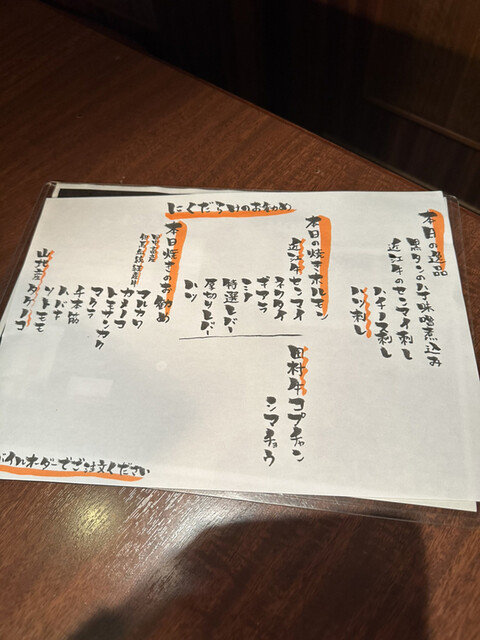 にくだらけのお勧め
本日の逸品
黒タンのハ丁味噌煮込み
近江牛のセンマイ刺し
ハチノス刺し
ハツ刺し
本日の焼きホルモン
近江牛センマイ
ネクタイ
ギアラ
ミノ
特選レバー
厚切りレバー
ハツ
田村牛 コプチャン
シマチョウ
本日焼きのお勧め
マルカワ
カメノコ
トモサンカク
マクラ
千本筋
ハバキ
ソトモモ
オーダーでご注文ください